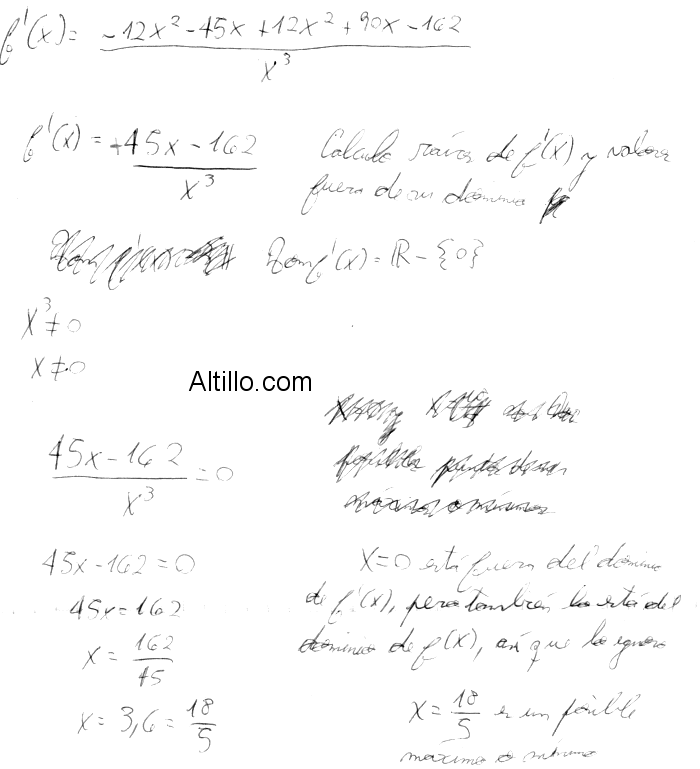 f'(x) = -12x² - 45x + 12x² + 90x - 162 / x³
f'(x) = +45x - 162 / x³
Calculo raíces de f'(x) y valores
fuera de su dominio
Dom f'(x) = ℝ - {0}
x³ ≠ 0
x ≠ 0
Altillo.com
45x - 162 / x³ = 0
45x - 162 = 0
45x = 162
x = 162 / 45
x = 3,6 = 18 / 5
x = 0 está fuera del dominio
de f'(x), pero también lo está del
dominio de f(x), así que lo ignoro
x = 18 / 5 es un posible
máximo o mínimo